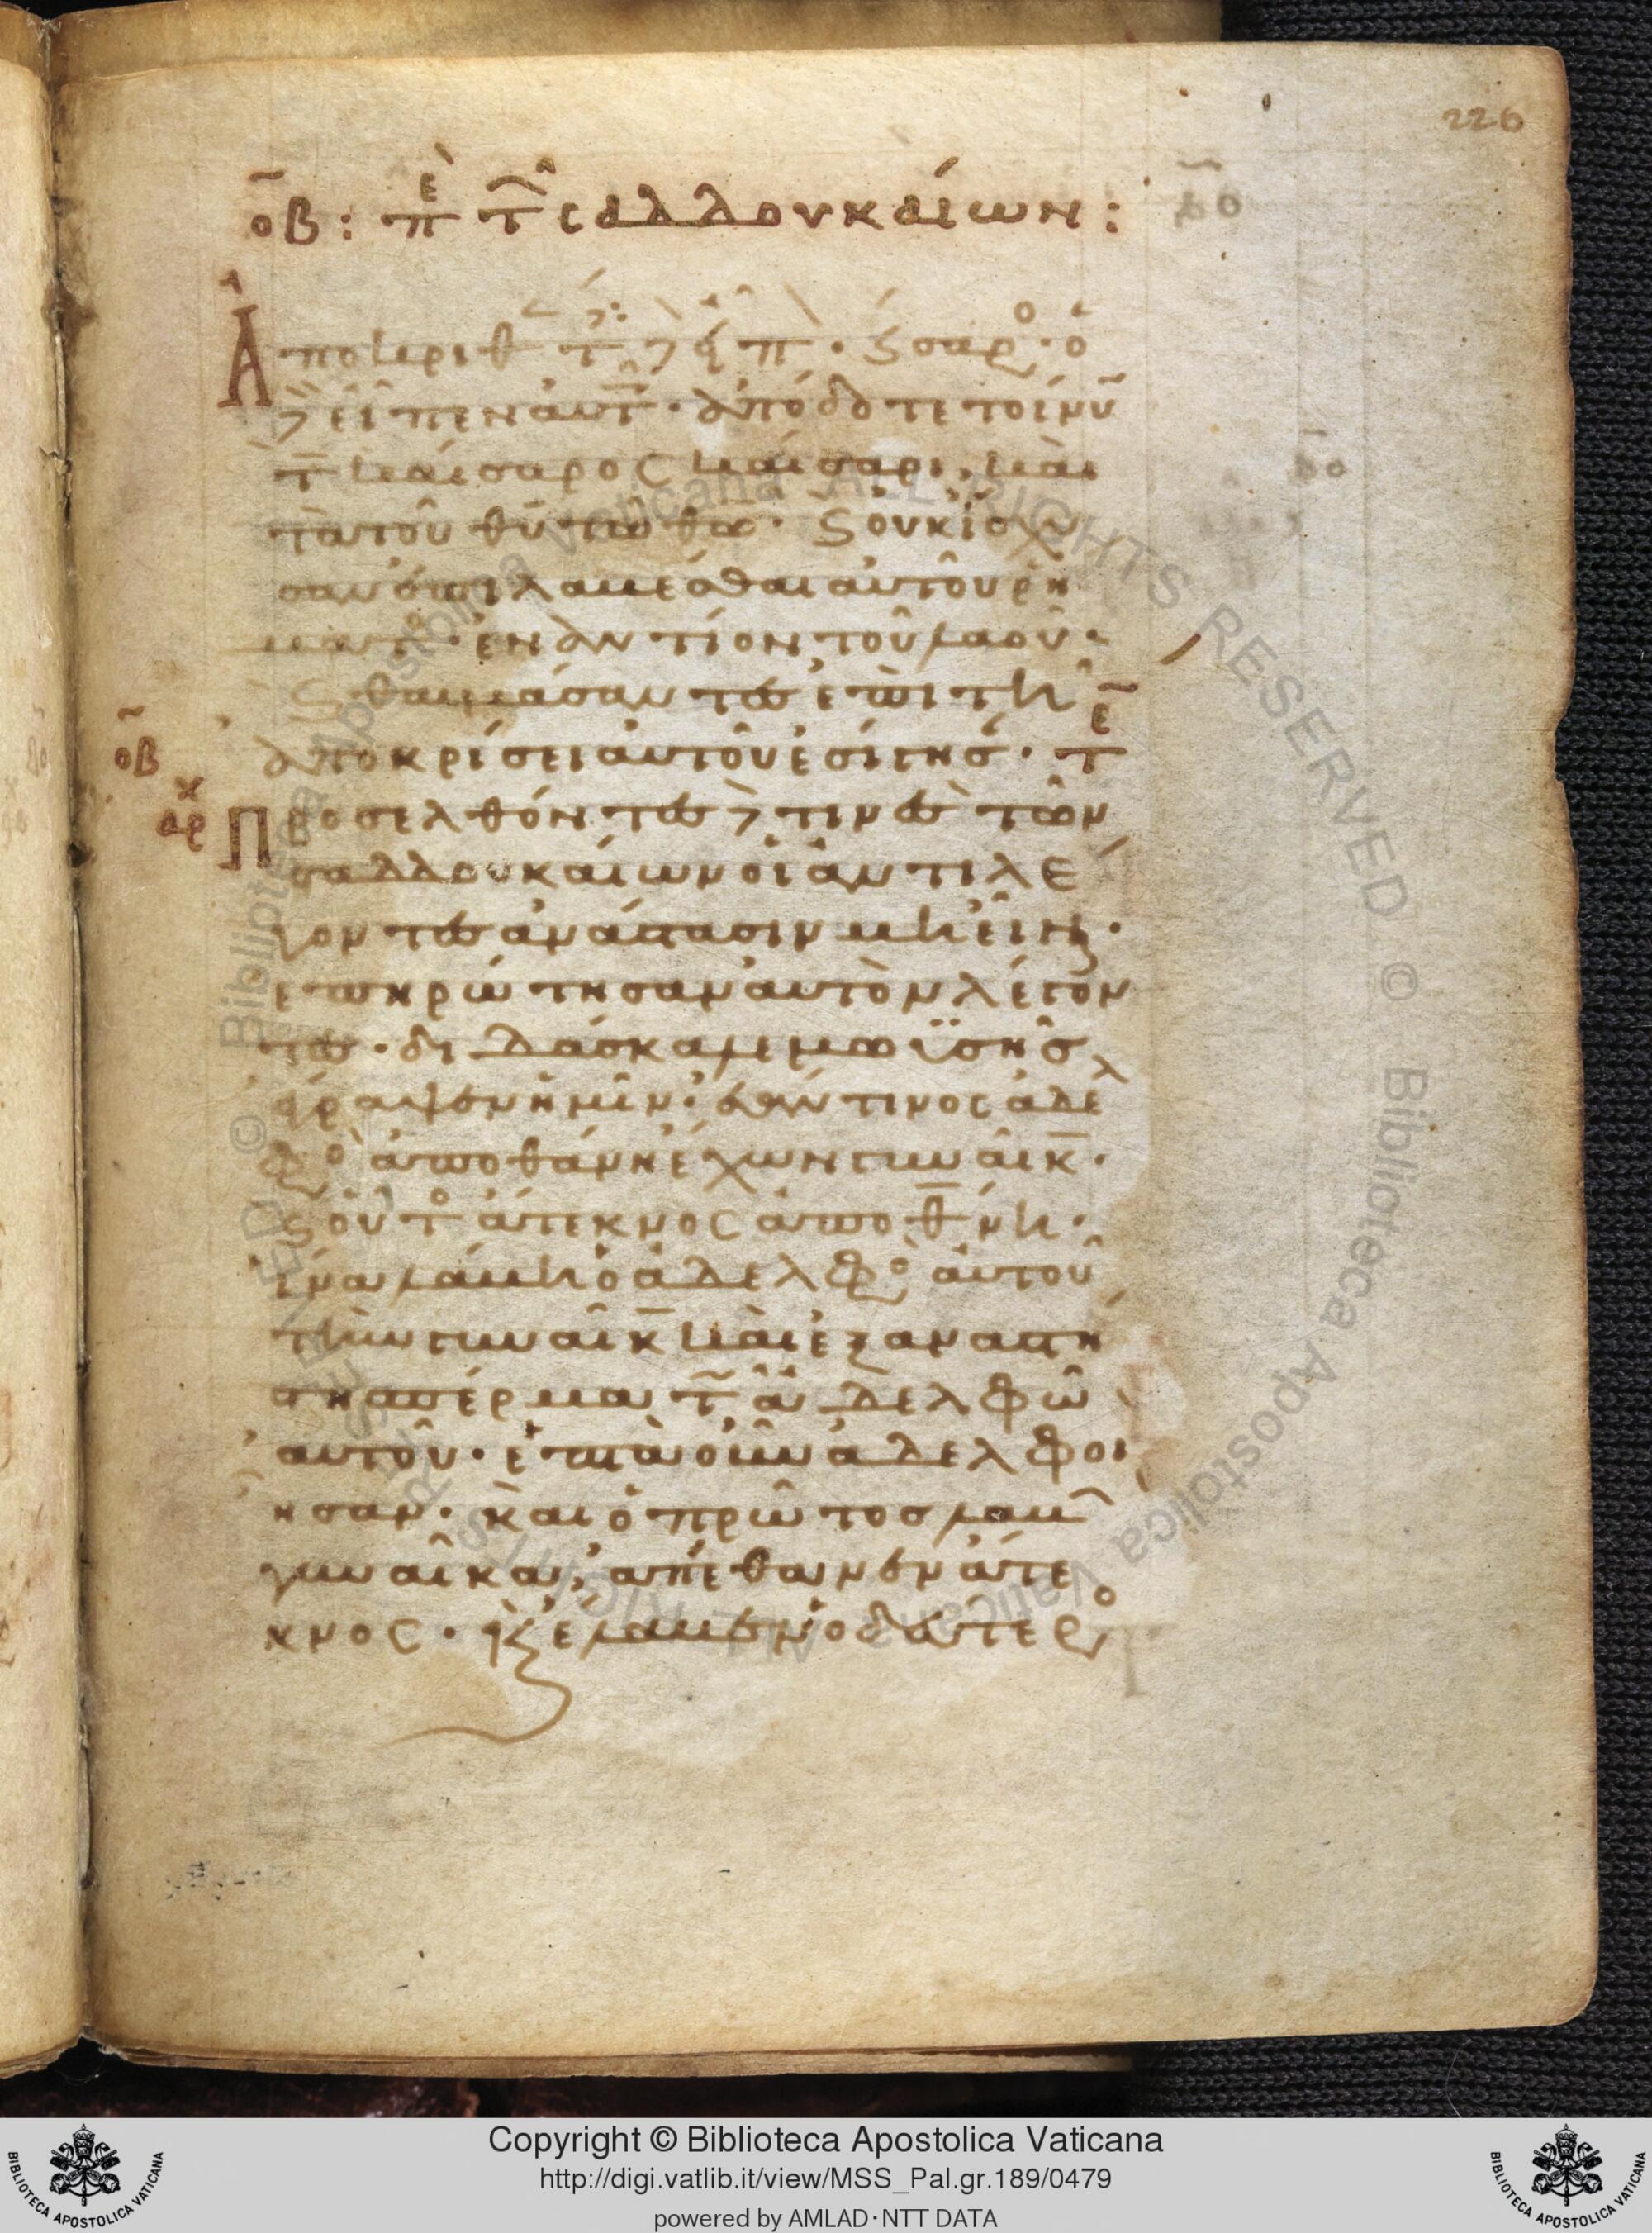 226
οβ : πε τ σαδδουκαίων :
Ἀποκριθ τ γρ π · ϛ σαρο · ὁ
δὲ εἶπεν αυτ · ἀπόδοτε τοίνυ
τ καίσαρος καίσαρι, καὶ
τὰ τοῦ θυ τῶ θω · ϛ οὐκ ἴσχυ
σαν ἐπιλαμέσθαι αὐτοῦ ρη
ματ · ἐναντίον τοῦ λαοῦ ·
ϛ θαυμάσαντες ἐπὶ τῆ
ἀποκρίσει αὐτοῦ ἐσίγησ · τε
οβ
αρχ
Προσελθόντες δέ τινες τῶν
σαδδουκαίων οἱ ἀντιλέ
γοντες ἀνάστασιν μὴ εἶναι ·
ἐπηρώτησαν αὐτὸν λέγον
τες · διδάσκαλε μωϋσῆς
ἔγραψεν ἡμῖν · ἐάν τινος ἀδελ
φὸ ἀποθάνη ἔχων γυναῖκ ·
ϛ οὗτο ἄτεκνος ἀποθνη ·
ἵνα λάβη ὁ ἀδελφὸ αὐτοῦ
τὴν γυναῖκ καὶ ἐξαναστή
ση σπέρμα τ ἀδελφῶ
αὐτοῦ · ἑπτὰ οὖν ἀδελφοὶ
ἦσαν · καὶ ὁ πρῶτος λαβ
γυναῖκα, ἀπέθανεν ἄτε
κνος · κ ἔλαβεν ὁ δεύτερο
Copyright © Biblioteca Apostolica Vaticana
http://digi.vatlib.it/view/MSS_Pal.gr.189/0479
powered by AMLAD·NTT DATA
BIBLIOTECA APOSTOLICA VATICANA
BIBLIOTECA APOSTOLICA VATICANA